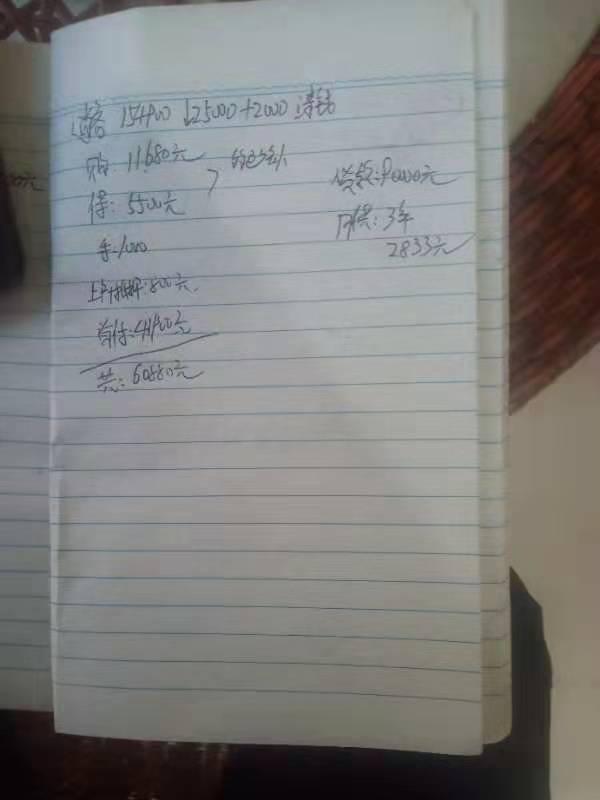 154900 ↓25000+2000
购: 11680元
保: 5500元
手:1000
上牌抵押:800元
首付:41900元
共: 60880元
贷款:90000元
月供: 3年
2833元